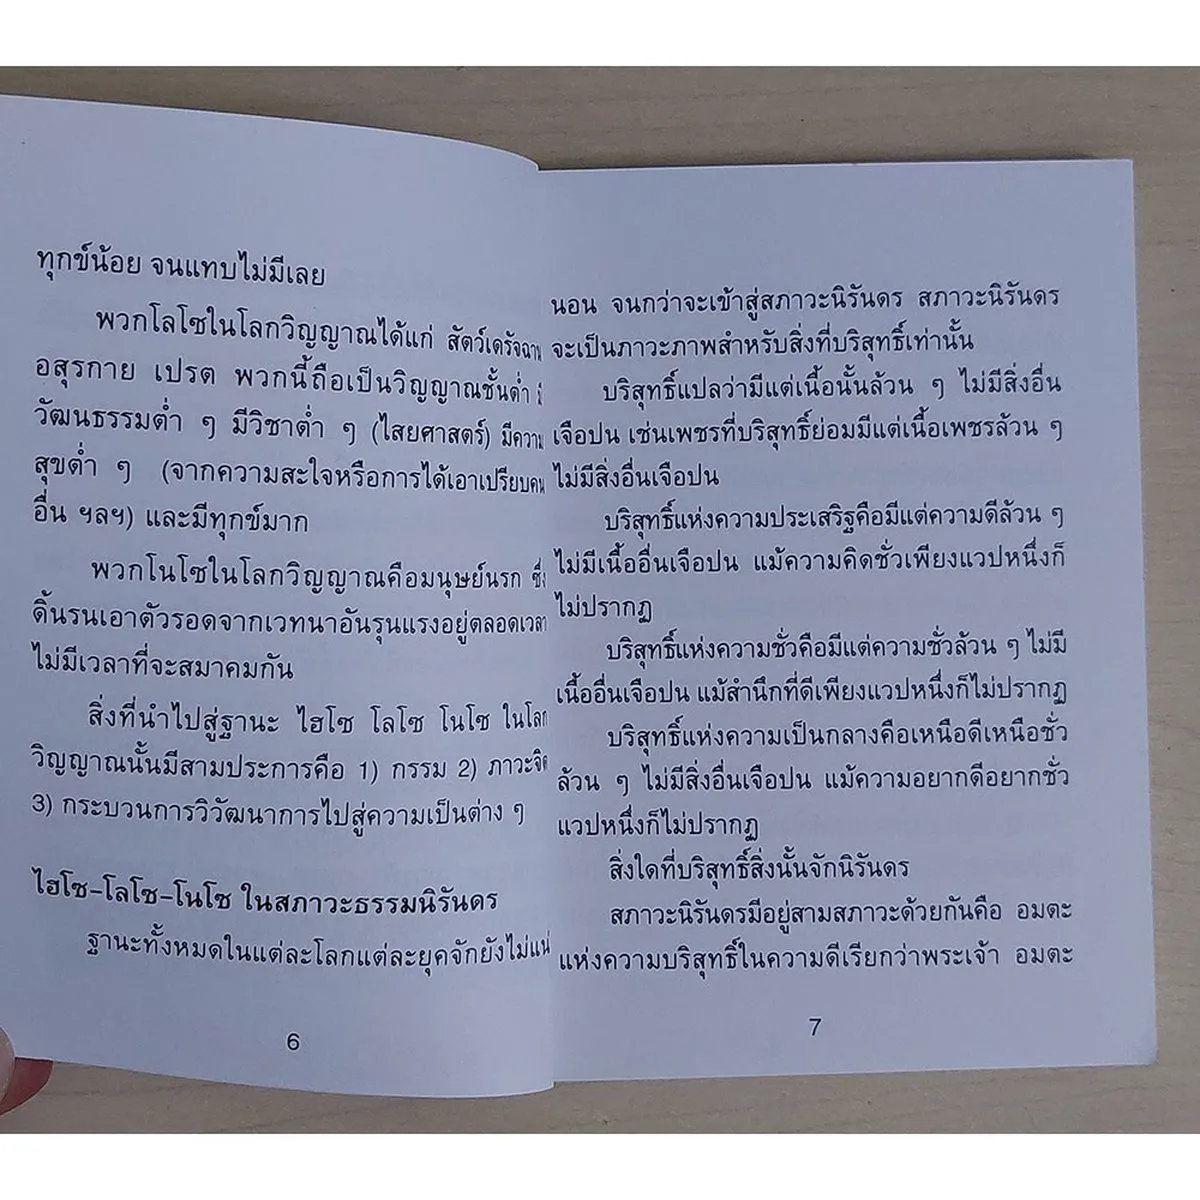 ทุกข์น้อย จนแทบไม่มีเลย
พวกโลโซในโลกวิญญาณได้แก่ สัตว์เดรัจฉาน
อสุรกาย เปรต พวกนี้ถือเป็นวิญญาณชั้นต่ำ มี
วัฒนธรรมต่ำ ๆ มีวิชาต่ำ ๆ (ไสยศาสตร์) มีความ
สุขต่ำ ๆ (จากความสะใจหรือการได้เอาเปรียบคน
อื่น ฯลฯ) และมีทุกข์มาก
พวกโนโซในโลกวิญญาณคือมนุษย์นรก ซึ่ง
ดิ้นรนเอาตัวรอดจากเวทนาอันรุนแรงอยู่ตลอดเวลา
ไม่มีเวลาที่จะสมาคมกัน
สิ่งที่นำไปสู่ฐานะ ไฮโซ โลโซ โนโซ ในโลก
วิญญาณนั้นมีสามประการคือ 1) กรรม 2) ภาวะจิต
3) กระบวนการวิวัฒนาการไปสู่ความเป็นต่าง ๆ
ไฮโซ-โลโซ-โนโซ ในสภาวะธรรมนิรันดร
ฐานะทั้งหมดในแต่ละโลกแต่ละยุคจักยังไม่แน่
6
นอน จนกว่าจะเข้าสู่สภาวะนิรันดร สภาวะนิรันดร
จะเป็นภาวะภาพสำหรับสิ่งที่บริสุทธิ์เท่านั้น
บริสุทธิ์แปลว่ามีแต่เนื้อนั้นล้วน ๆ ไม่มีสิ่งอื่น
เจือปน เช่นเพชรที่บริสุทธิ์ย่อมมีแต่เนื้อเพชรล้วน ๆ
ไม่มีสิ่งอื่นเจือปน
บริสุทธิ์แห่งความประเสริฐคือมีแต่ความดีล้วน ๆ
ไม่มีเนื้ออื่นเจือปน แม้ความคิดชั่วเพียงแวปหนึ่งก็
ไม่ปรากฏ
บริสุทธิ์แห่งความชั่วคือมีแต่ความชั่วล้วน ๆ ไม่มี
เนื้ออื่นเจือปน แม้สำนึกที่ดีเพียงแวปหนึ่งก็ไม่ปรากฏ
บริสุทธิ์แห่งความเป็นกลางคือเหนือดีเหนือชั่ว
ล้วน ๆ ไม่มีสิ่งอื่นเจือปน แม้ความอยากดีอยากชั่ว
แวปหนึ่งก็ไม่ปรากฏ
สิ่งใดที่บริสุทธิ์สิ่งนั้นจักนิรันดร
สภาวะนิรันดรมีอยู่สามสภาวะด้วยกันคือ อมตะ
แห่งความบริสุทธิ์ในความดีเรียกว่าพระเจ้า อมตะ
7